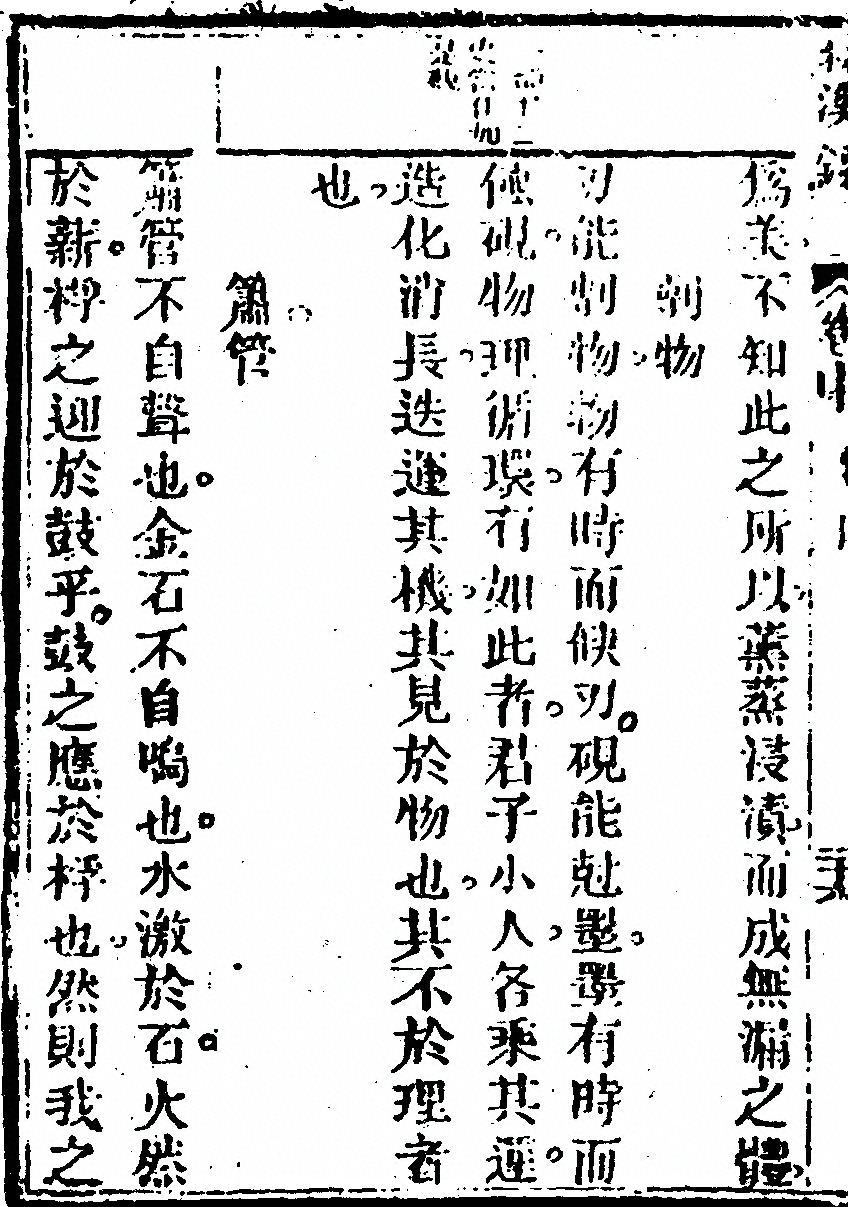 爲美不知此之所以薰蒸浸漬而成無漏之體
剩物
刃能割物物有時而缺刃硯能尅墨墨有時而
硯物理循環有如此者君子小人各乘其運
造化消長迭運其機其見於物也其不於理者
也
簫管
簫管不自聲也金石不自鳴也水激於石火然
於薪桴之迎於鼓乎鼓之應於桴也然則我之